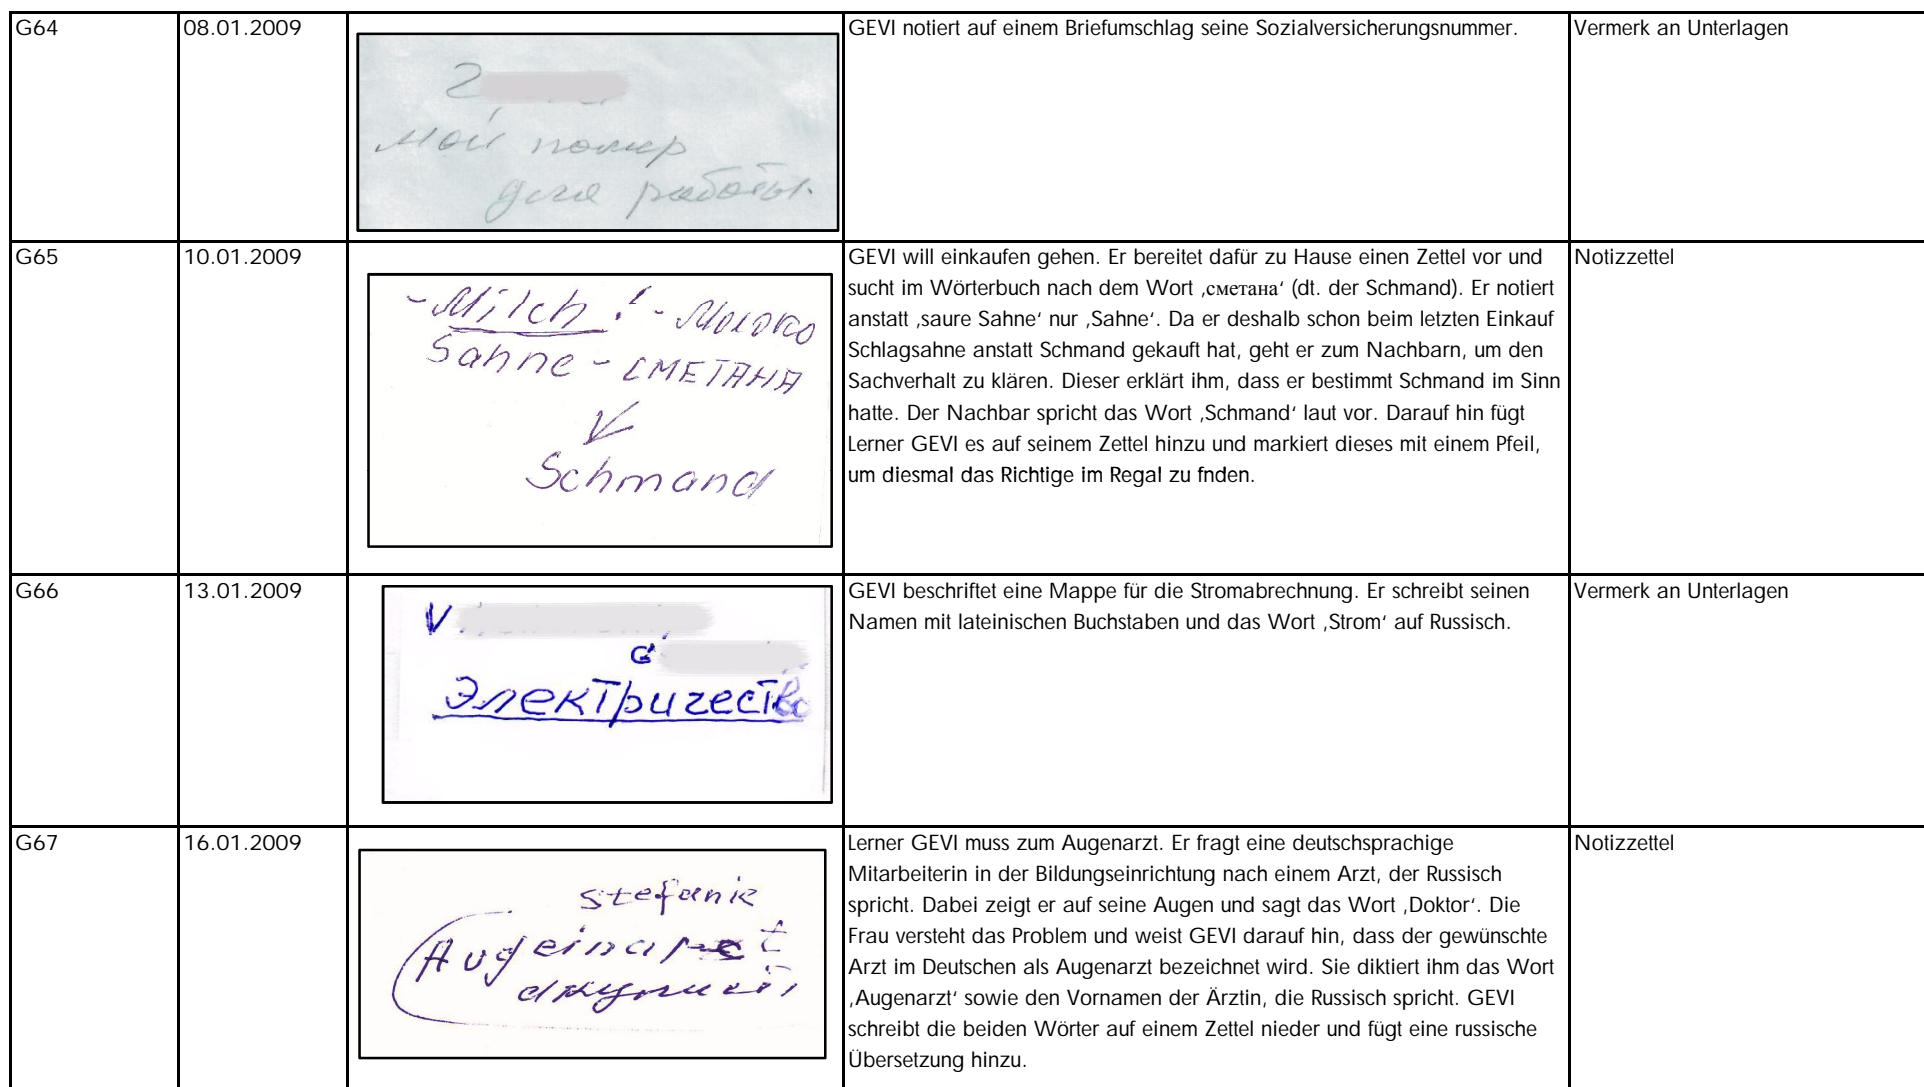 G64
08.01.2009
2
мой номер
для работы.
GEVI notiert auf einem Briefumschlag seine Sozialversicherungsnummer.
Vermerk an Unterlagen
G65
10.01.2009
- Milch ! - Молоко
Sahne - СМЕТАНА
Schmand
GEVI will einkaufen gehen. Er bereitet dafür zu Hause einen Zettel vor und
sucht im Wörterbuch nach dem Wort ‚сметана‘ (dt. der Schmand). Er notiert
anstatt ‚saure Sahne‘ nur ‚Sahne‘. Da er deshalb schon beim letzten Einkauf
Schlagsahne anstatt Schmand gekauft hat, geht er zum Nachbarn, um den
Sachverhalt zu klären. Dieser erklärt ihm, dass er bestimmt Schmand im Sinn
hatte. Der Nachbar spricht das Wort ‚Schmand‘ laut vor. Darauf hin fügt
Lerner GEVI es auf seinem Zettel hinzu und markiert dieses mit einem Pfeil,
um diesmal das Richtige im Regal zu fnden.
Notizzettel
G66
13.01.2009
V
G
Электричество
GEVI beschriftet eine Mappe für die Stromabrechnung. Er schreibt seinen
Namen mit lateinischen Buchstaben und das Wort ‚Strom‘ auf Russisch.
Vermerk an Unterlagen
G67
16.01.2009
stefanie
Lerner GEVI muss zum Augenarzt. Er fragt eine deutschsprachige
Mitarbeiterin in der Bildungseinrichtung nach einem Arzt, der Russisch
spricht. Dabei zeigt er auf seine Augen und sagt das Wort ‚Doktor‘. Die
Frau versteht das Problem und weist GEVI darauf hin, dass der gewünschte
Arzt im Deutschen als Augenarzt bezeichnet wird. Sie diktiert ihm das Wort
‚Augenarzt‘ sowie den Vornamen der Ärztin, die Russisch spricht. GEVI
schreibt die beiden Wörter auf einem Zettel nieder und fügt eine russische
Übersetzung hinzu.
Notizzettel